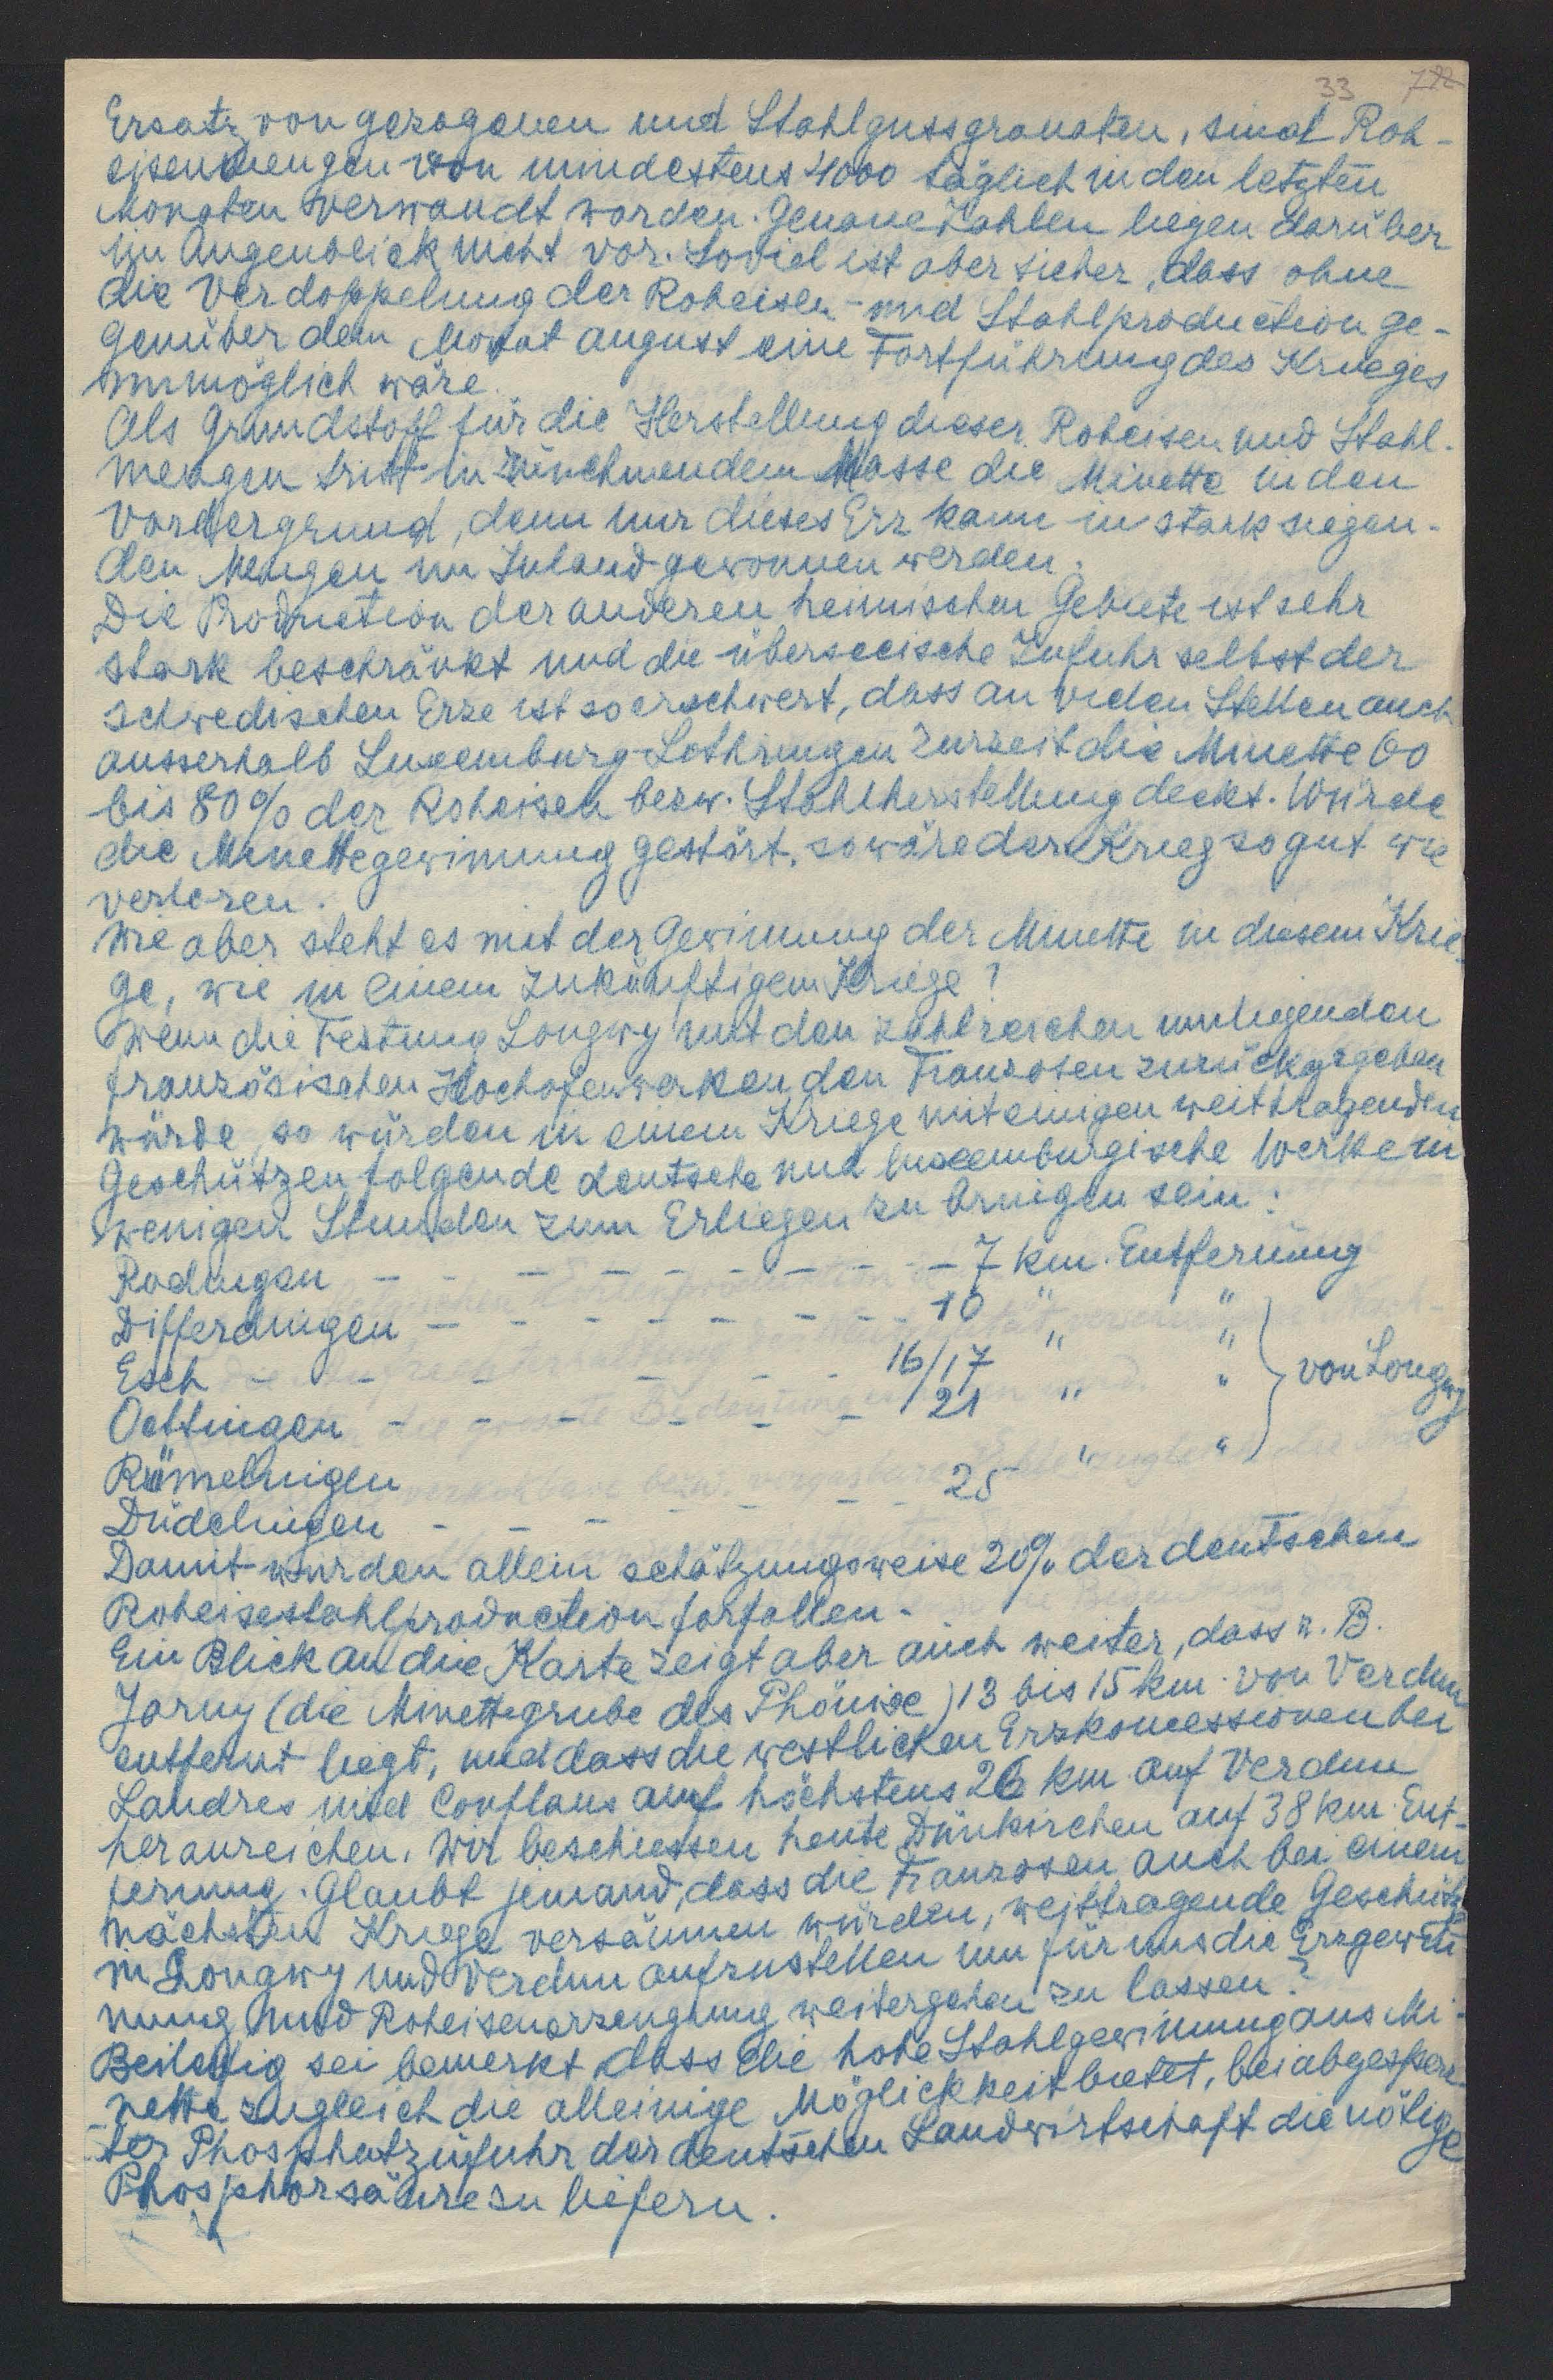 33 722
Ersatz von gezogenen und Stahlgussgranaten, sind Roh-
eisenmengen von mindestens 4000 täglich in den letzten
Monaten verwandt worden. Genaue Zahlen liegen darüber
im Augenblick nicht vor. Soviel ist aber sicher, dass ohne
die Verdoppelung der Roheisen- und Stahlproduction ge-
genüber dem Monat august eine Fortführung des Krieges
unmöglich wäre.
Als Grundstoff für die Herstellung dieser Roheisen und Stahl-
mengen tritt in zunehmendem Masse die Minette in den
Vordergrund, denn nur dieses Erz kann in stark steigen-
den Mengen im Inland gewonnen werden.
Die Production der anderen heimischen Gebiete ist sehr
stark beschränkt und die überseeische Zufuhr selbst der
schwedischen Erze ist so erschwert, dass an vielen Stellen auch
ausserhalb Luxemburg-Lothringen zurzeit die Minette 60
bis 80% der Roheisen bezw. Stahlherstellung deckt. Würde
die Minettegewinnung gestört, so wäre der Krieg so gut wie
verloren.
Wie aber steht es mit der Gewinnung der Minette in diesem Krie-
ge, wie in einem zukünftigem Kriege?
Wenn die Festung Longwy mit den zahlreichen umliegenden
französischen Hochofenwerken den Franzosen zurückgegeben
würde, so würden in einem Kriege mit einigen weittragenden
Geschützen folgende deutsche und luxemburgische Werke in
wenigen Stunden zum Erliegen zu bringen sein:
Rodingen - - - - - - - - - 7 km. Entfernung
Differdingen - - - - - - - - 10 " "
Esch - - - - - - - 16/17 " " } von Longwy
Oettingen - - - - - - 21 " "
Rümelingen 25 " "
Düdelingen - - - - - -
Damit wurden allein schätzungsweise 20% der deutschen
Roheisestahlproduction forfallen.
Ein Blick an die Karte zeigt aber auch weiter, dass z. B.
Jarny (die Minettegrube des Phönixe) 13 bis 15 km. von Verdun
entfernt liegt, und dass die westlichen Erzkoncessionen bei
Landres und Conflans auf höchstens 26 km auf Verdun
heranreichen. Wir beschiessen heute Dünkirchen auf 38 km. Ent-
fernung. Glaubt jemand, dass die Franzosen auch bei einem
nächsten Kriege versäumen würden, weittragende Geschütze
in Longwy und Verdun aufzustellen um für uns die Erzgewin
nung und Roheisenerzeugung weitergehen zu lassen?
Beiläufig sei bemerkt, dass die hohe Stahlgewinnung aus Mi-
nette zugleich die alleinige Möglickkeit bietet, bei abgesperr-
ter Phosphatzufuhr der deutschen Landwirtschaft die nötige
Phosphorsäure zu liefern.